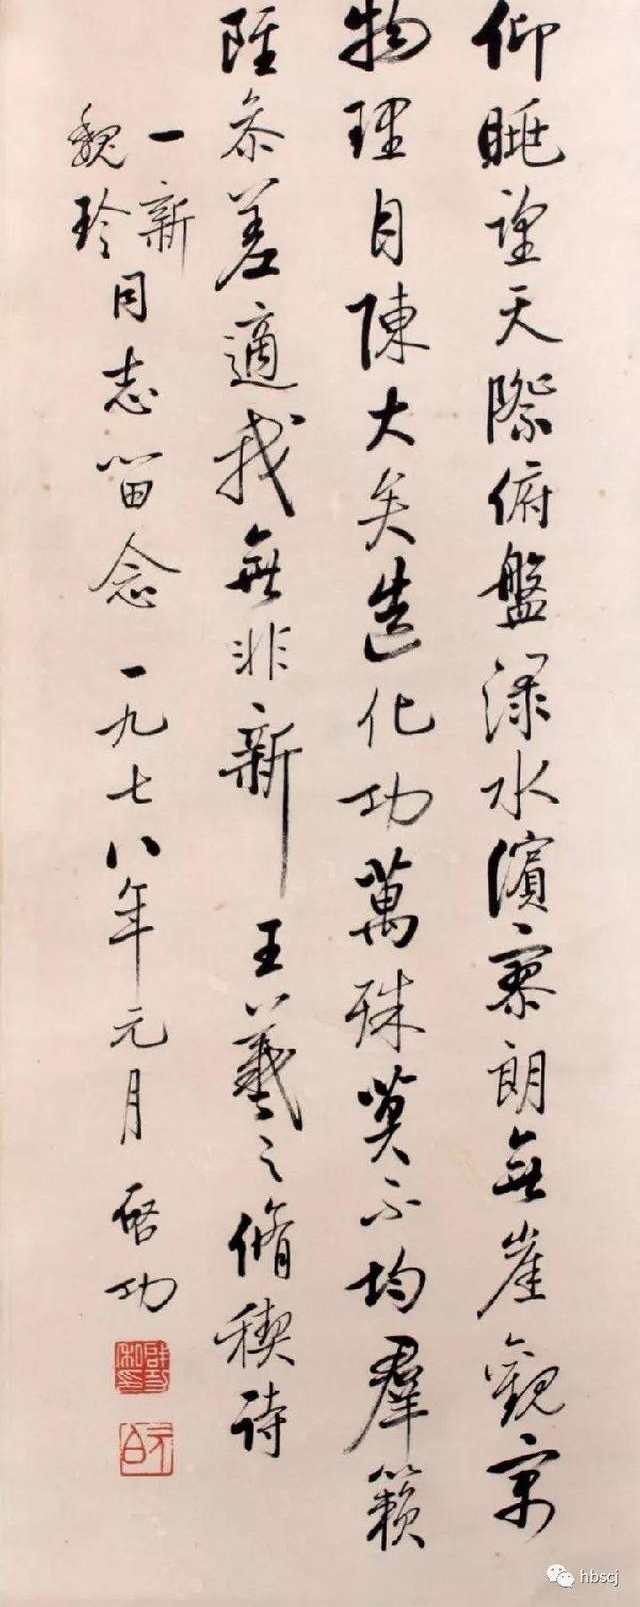 仰眺望天際俯盤渌水濱寥朗無崖觀寓
物理自陳大矣造化功萬殊莫不均羣籟
雖參差適我無非新 王羲之脩禊詩
一新
魏玲
同志留念 一九七八年元月 啓功
元白
hbscj